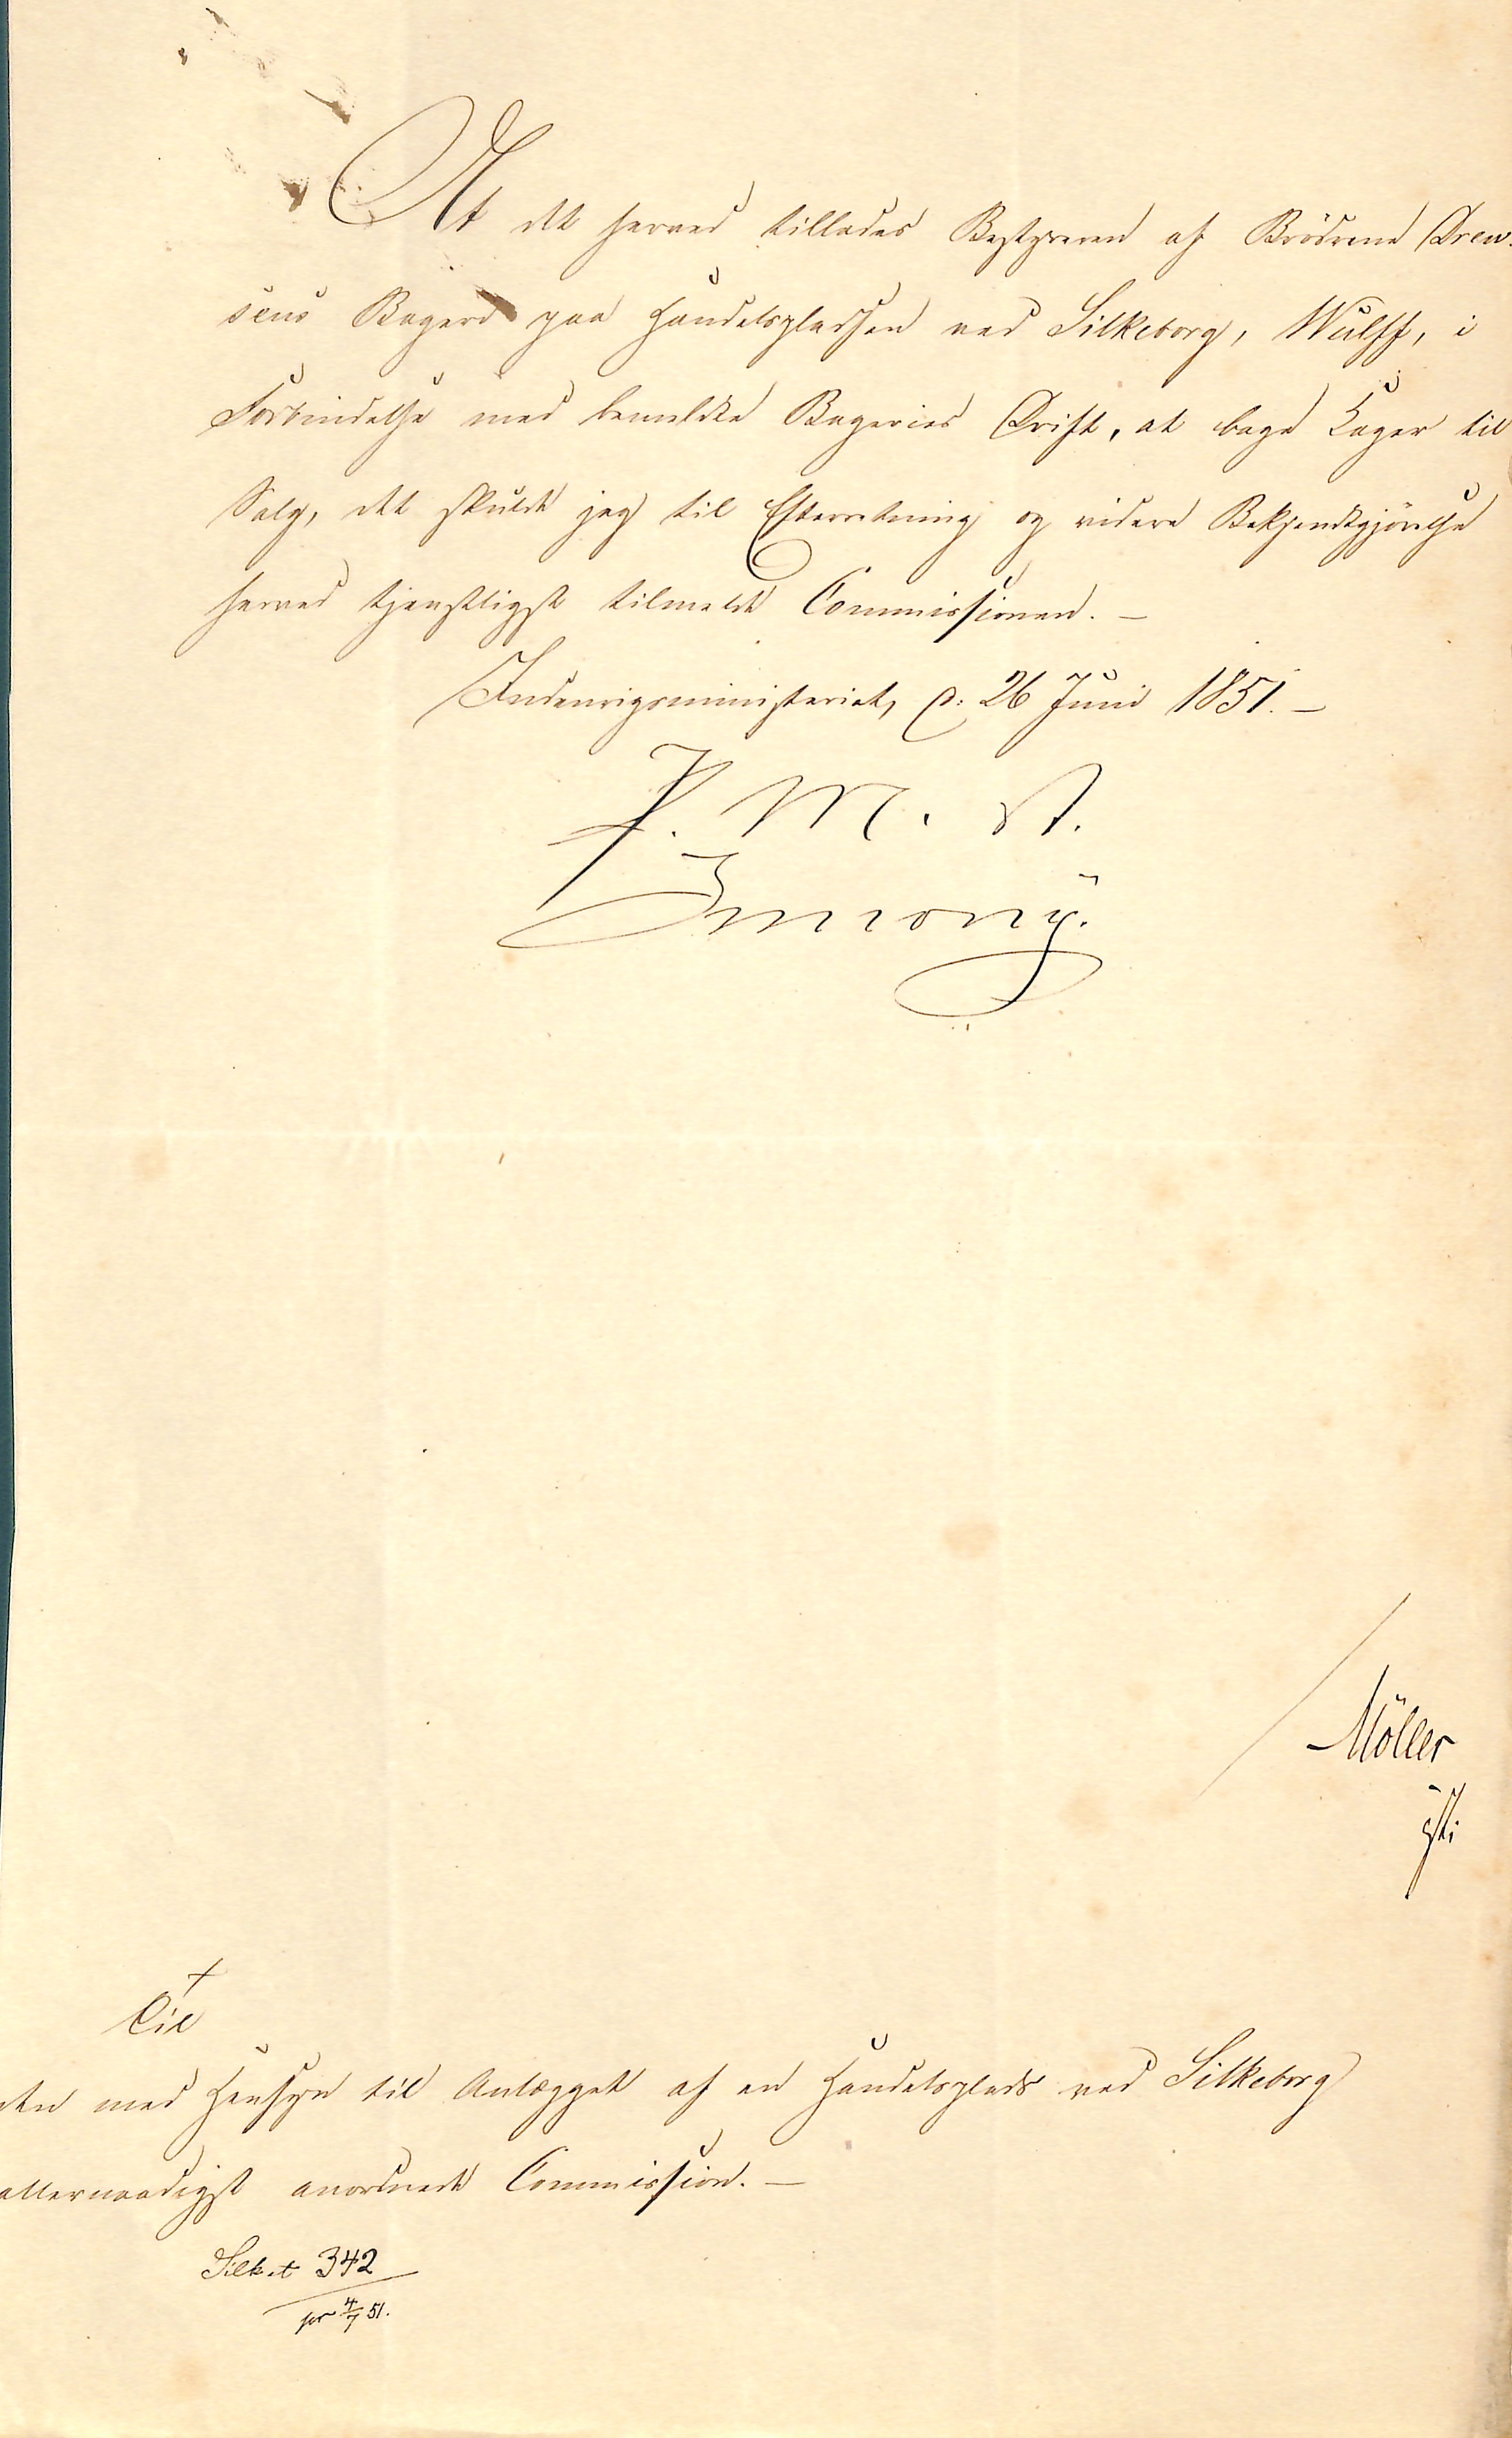 At det herved tillades Bestyreren af Brødrene Drew-
sens Bageri paa Handelspladsen ved Silkeborg, Wulff, i
Forbindelse med bemeldte Bageries Drift, at bage Kager til
Salg, det skulde jeg til Efterretning og videre Bekjendtgjörelse
herved tjenstligst tilmelde Commissionen. —
Indenrigsministeriet, d: 26 Juni 1851. —
F. M. A.
Simony.
Möller
Til
den med Hensyn til Anlægget af en Handelsplads ved Silkeborg
allernaadigst anordnede Commission. —
Silk.t 342
pr 4/7 51.